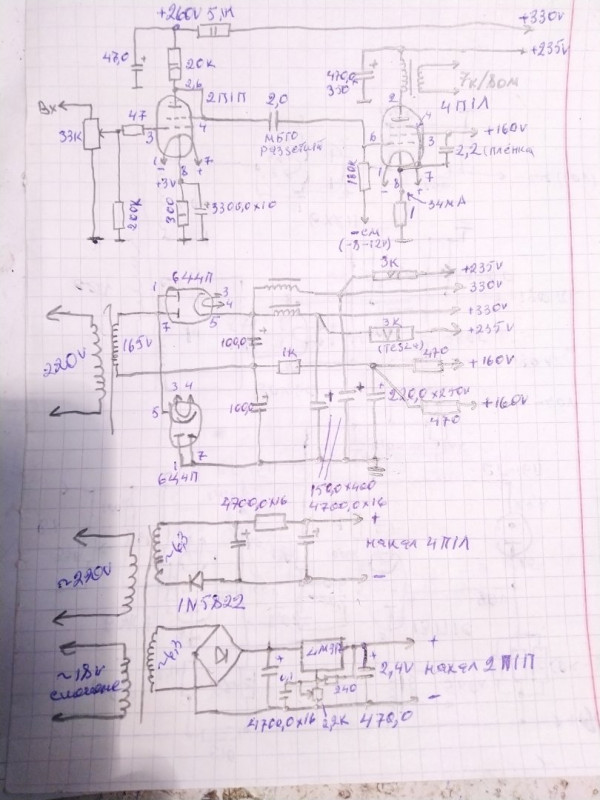 +260V 5,1К
+330V
47,0
20К
470,0
350
+235V
2,6
2П1П
2
7К/8ОМ
Вх
47
2,0
4П1Л
33К
3
4
МБГО
4
3
+160V
6
2,2 (плёнка
1
8
7
+3V
200К
300
3300,0х10
180К
1
8
7
1
34МА
-СМ
(-8-12V)
6Ц4П
3К
+235V
1
3
4
330V
7
5
+330V
220V
165V
100,0
3К
(TESLA)
+235V
1К
470
+160V
3 4
5
100,0
220,0х250V
+160V
470
1 7
6Ц4П
150,0х400
4700,0х16
4700,0х16
+
~220V
~6,3
накал 4П1Л
-
1N5822
~18V
смещение
~6,3
+
2,4V накал 2П1П
240
0,1
-
4700,0х16
2,2К
470,0